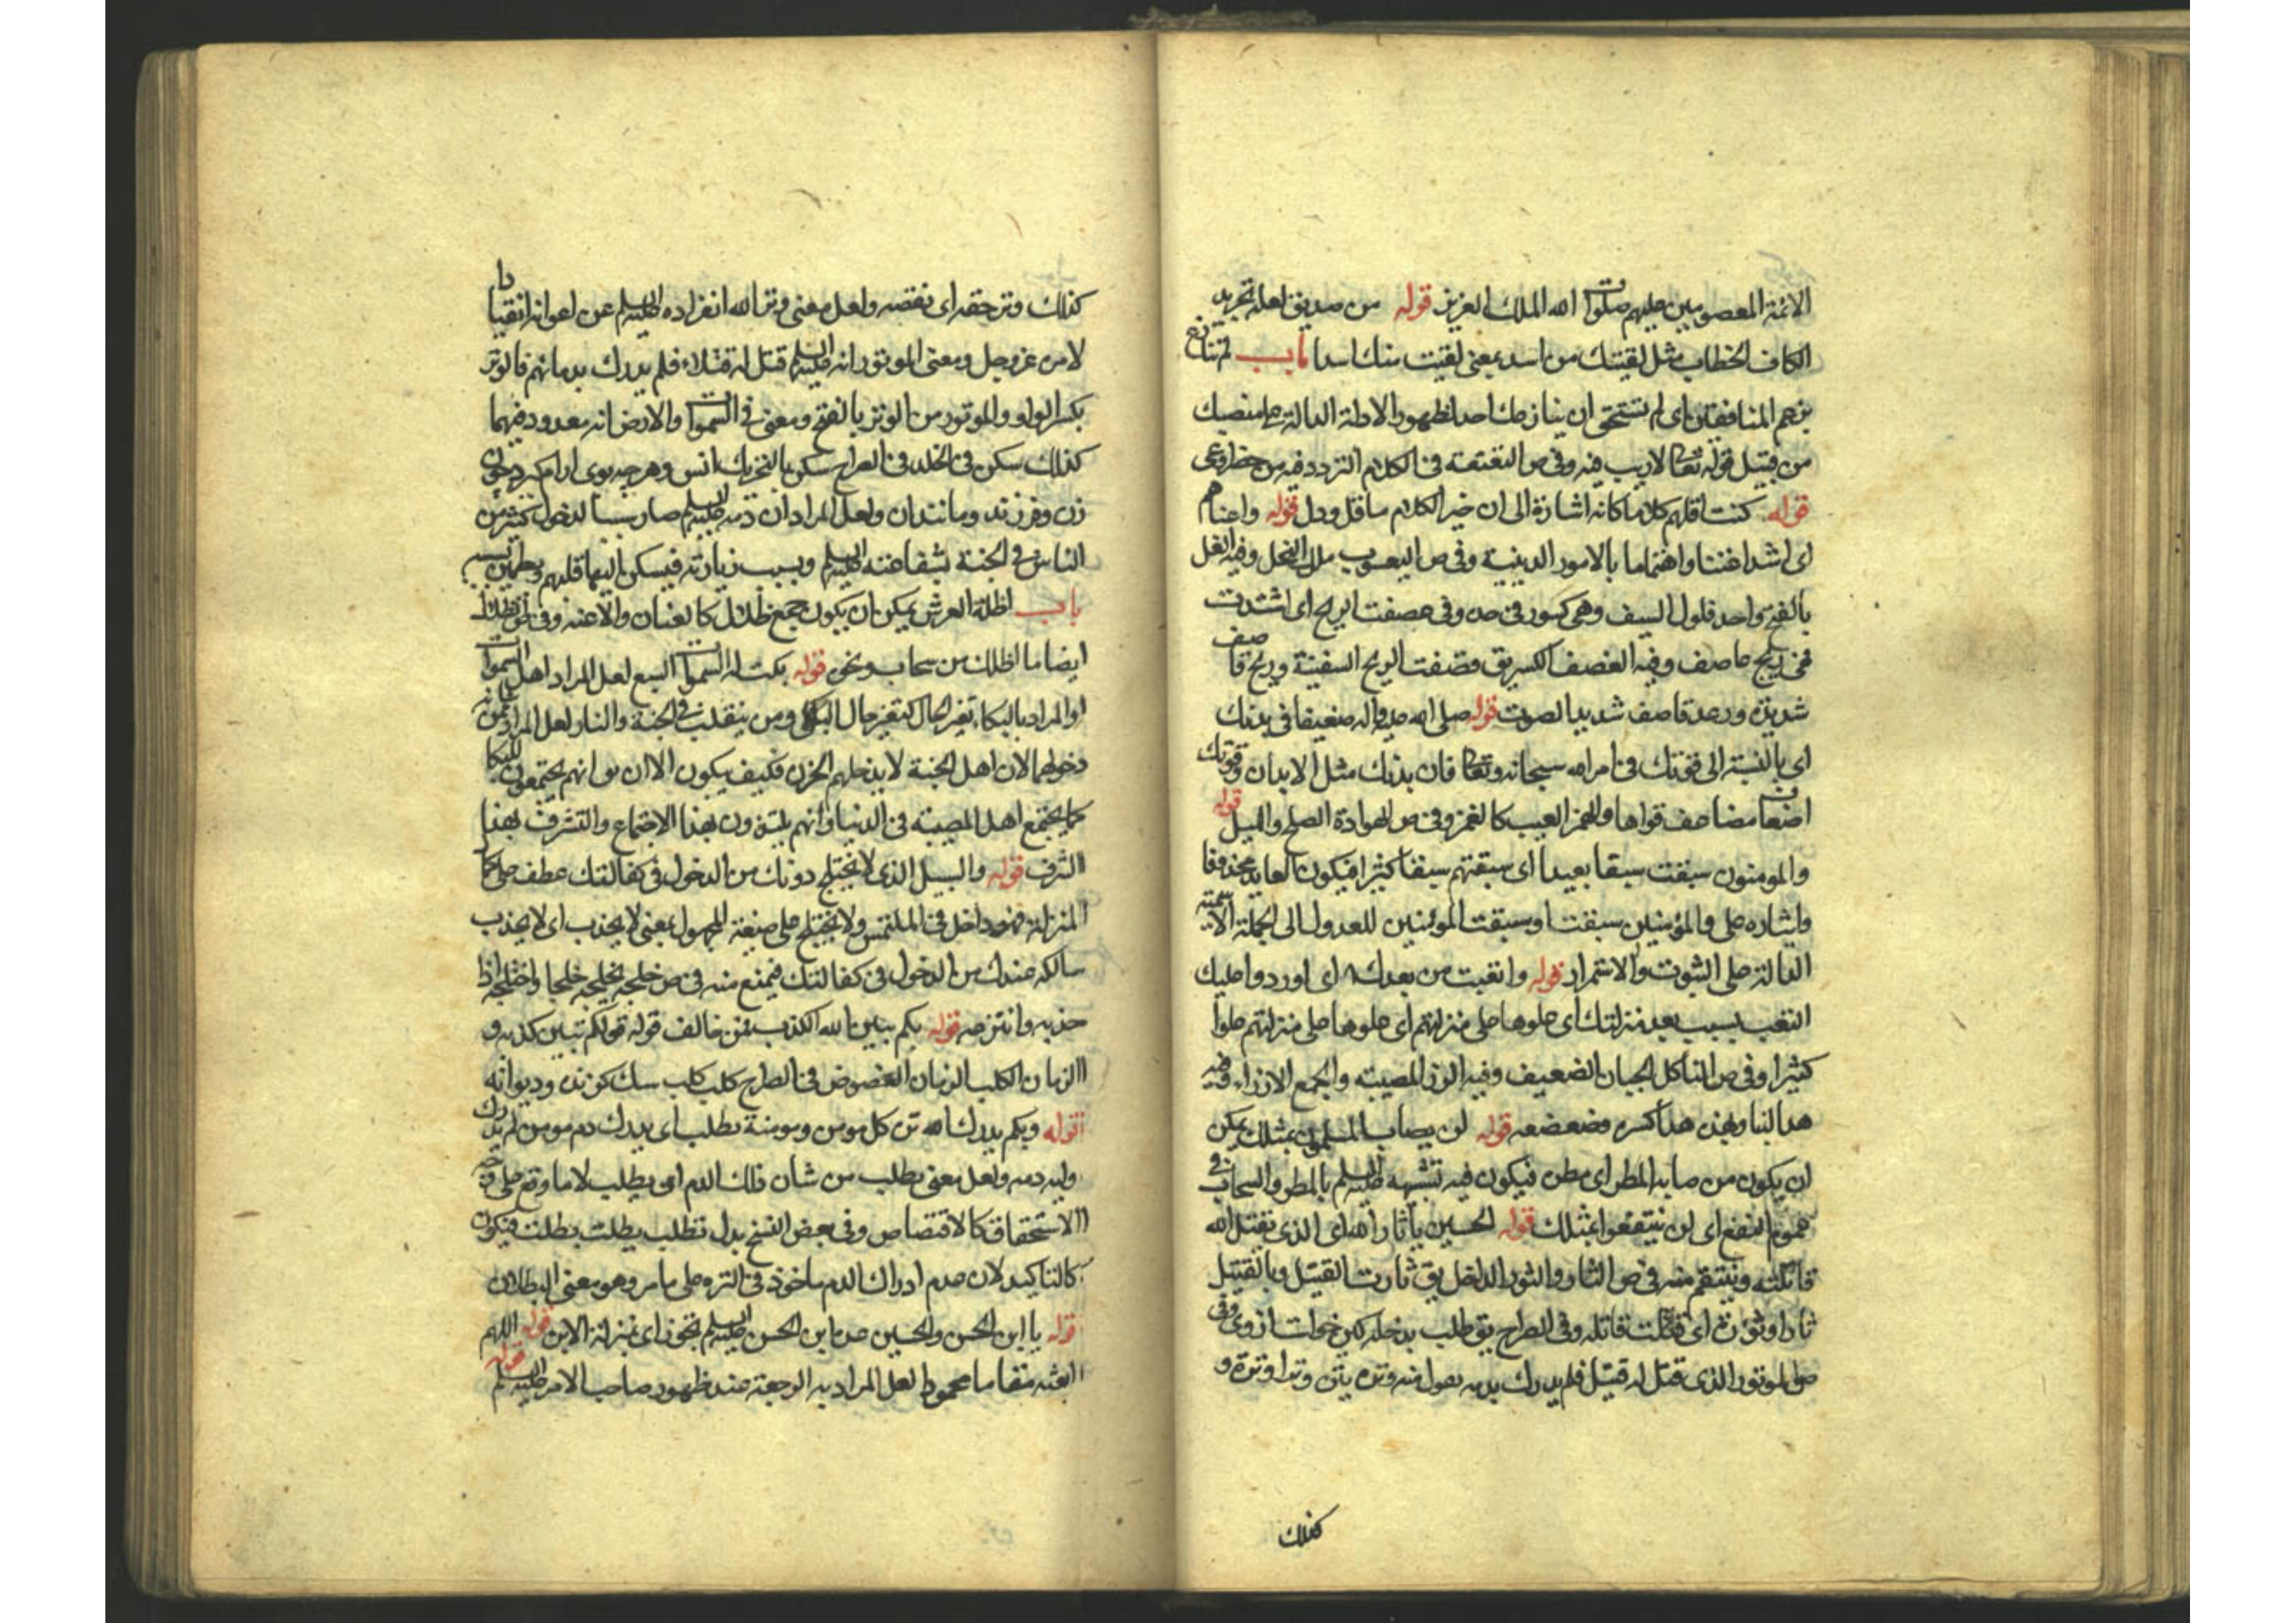 الائمة المعصومين عليهم صلوات الله الملك العزيز قوله من صديق لعله تجريد
الكاف الخطاب مثل لقيتك من اسد بمعنى لقيت منك اسدا باب لم تنازع
برغم المنافقين اى لم تستحق ان ينازعك احد لظهور الادلة الدالة على منصبك
من قبيل قوله تعالى لا ريب فيه وفى ص التعتعة فى الكلام التردد فيه من حصر او عى
قوله كنت اقلهم كلاما كانه اشارة الى ان خير الكلام ما قل ودل قوله واعناهم
اى اشد اعتناء واهتماما بالامور الدينية وفى ص اليعسوب ملك النحل وفيه الفل
بالفتح واحد فلول السيف وهى كسور فى حده وفى عصفت الريح اى اشتدت
فهى ريح عاصف وفيه القصف الكسر يق قصفت الريح السفينة وريح قاصف
شديدة ورعد قاصف شديد الصوت قوله صلى الله عليه واله ضعيفا فى بدنك
اى بالنسبة الى قوتك فى امر الله سبحانه وتعالى فان بدنك مثل الابدان وقوتك
اضعاف مضاعف قواها والغمز العيب كالغمز وفى ص الهوادة الصلح والميل قوله
والمومنون سبقت سبقا بعيدا اى سبقتهم سبقا كثيرا فيكون العايد محذوفا
وايثاره على والمؤمنين سبقت او سبقت المؤمنين للعدول الى الجملة الاسمية
الدالة على الثبوت والاستمرار قوله واتعبت من بعدك اى اوردوا عليك
التعب بسبب بعد منزلتك اى علوها على منزلتهم اى علوها على منزلتهم علوا
كثيرا وفى ص الناكل الجبان الضعيف وفيه الرزء المصيبة والجمع الارزاء وفيه
هد البناء يهده هدا كسره وضعضعه قوله لن يصاب المسلمون بمثلك يمكن
ان يكون من صابه المطر اى مطر فيكون فيه تشبيهه عليه السلم بالمطر والسحاب فى
عموم النفع اى لن ينتفعوا بمثلك قوله الحسين يا ثار الله اى الذى يقتل الله
قاتله وينتقم منه فى ص الثار والثورة الذحل يق ثارت القتيل وبالقتيل
ثارا وثؤرة اى قتلت قاتله وفى الصراح يق طلب بذحله كين خواست از وى وفى
ص الموتور الذى قتل له قتيل فلم يدرك بدمه تقول منه وتره يتره وترا وترة و
كذلك
كذلك وتره حقه اى نقصه ولعل معنى وتر الله انفراده عليه السلم عن اعوانه انقيادا
لامره عز وجل ومعنى الموتور انه عليه السلم قتل له قتلاء فلم يدرك بدمائهم فالوتر
بكسر الواو والموتور من الوتر بالفتح ومعنى فى السموات والارض انه معدود فيهما
كذلك سكن فى الخلد فى الصراح سكن بالتحريك انس وهر چه بوى ارام گيرد چون
زن وفرزند ومانند ان ولعل المراد ان دمه عليه السلم صار سببا لدخول كثير من
الناس فى الجنة بشفاعته عليه السلم وبسبب زيارته فيسكن اليها قلبهم ويطمئن بسببه
باب اظلة العرش يمكن ان يكون جمع ظلال كالعنان والاعنة وفى ص الظلال
ايضا ما اظلك من سحاب ونحوه قوله بكت له السموات السبع لعل المراد اهل السموات
او المراد بالبكاء تغير الحال كتغير حال الباكى ومن يتقلب فى الجنة والنار لعل المراد
دخولهما لان اهل الجنة لا يدخلهم الحزن فكيف يكون الا ان يق انهم يجتمعون للبكاء
كما يجتمع اهل المصيبة فى الدنيا وانهم يلتذون بهذا الاجتماع والتشرف بهذا
الشرف قوله والسبيل الذى لا يختلج دونك من الدخول فى كفالتك عطف على كما
المنزلة فهو داخل فى الملتمس ولا يختلج على صيغة المجهول بمعنى لا يجذب اى لا يجذب
سالكه عندك من الدخول فى كفالتك فيمنع منه فى ص خلجه يخلجه خلجا واختلجه اذا
جذبه وانتزعه قوله بكم يبين الله الكذب فمن خالف قوله قولكم تبين كذبه و
الزمان الكلب الزمان العضوض فى الصراح كلب كلب سك گزنده وديوانه
قوله وبكم يدرك الله ترة كل مومن ومومنة تطلب اى يدرك دم مومن لم يدرك
وليه دمه ولعل معنى يطلب من شان ذلك الدم ان يطلب لا ما وقع على وجه
الاستحقاق كالاقتصاص وفى بعض النسخ بدل تطلب بطلت بطلت فيكون
كالتاكيد لان عدم ادراك الدم ماخوذ فى الترة على ما مر وهو معنى البطلان
قوله يا ابن الحسن والحسين عد ابن الحسن عليه السلم تجوز اى بمنزلة الابن قوله اللهم
ابعثه مقاما محمودا لعل المراد به الرجعة عند ظهور صاحب الامر عليه السلم قوله